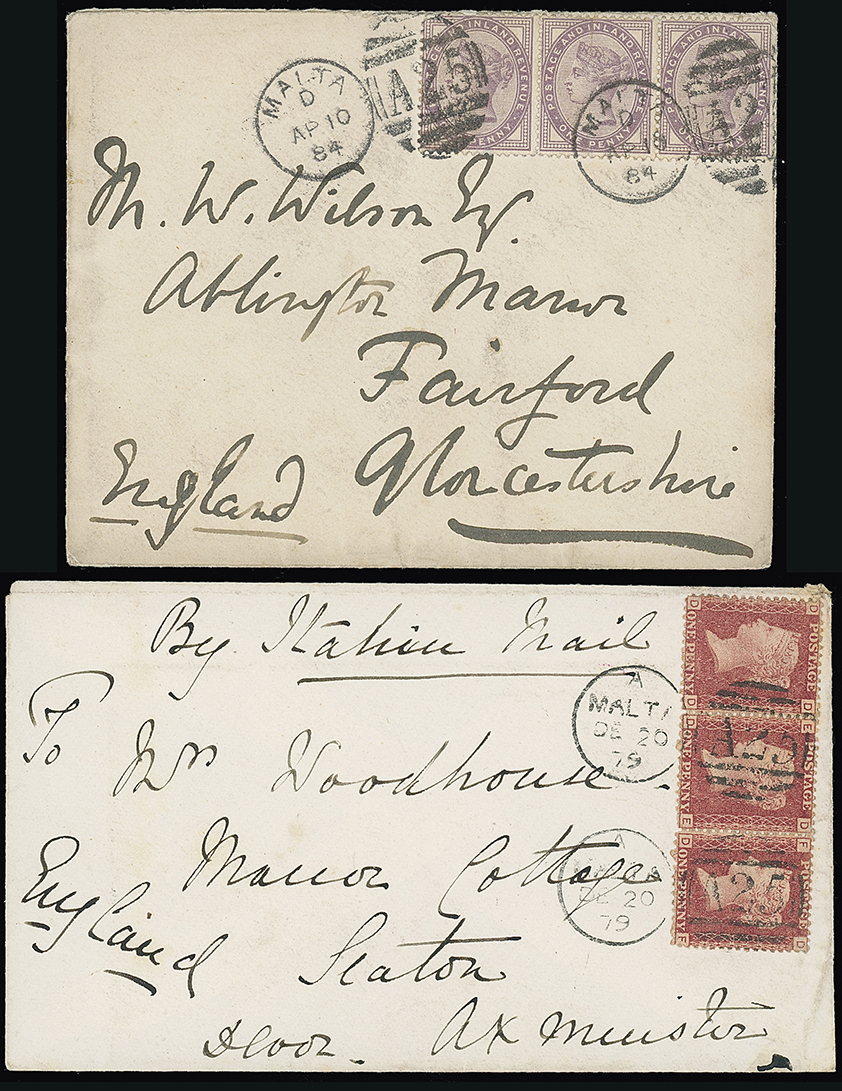 MALTA
D
AP 10
84
A25
POSTAGE AND INLAND REVENUE
ONE PENNY
MALTA
D
84
A2
M. W. Wilson Esq.
Ablington Manor
Fairford
Gloucestershire
England
By Italian Mail
A
MALTA
DE 20
79
To
Mrs Woodhouse.
Manor Cottage
England
Seaton
Axminster
Devon.
A
MALTA
DE 20
79
D POSTAGE D
D ONE PENNY D
E POSTAGE D
D ONE PENNY E
F POSTAGE D
D ONE PENNY F
A25
A25